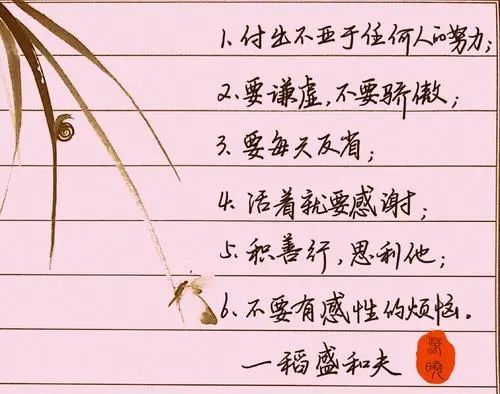 1. 付出不亚于任何人的努力;
2. 要谦虚,不要骄傲;
3. 要每天反省;
4. 活着就要感谢;
5. 积善行,思利他;
6. 不要有感性的烦恼。
—稻盛和夫